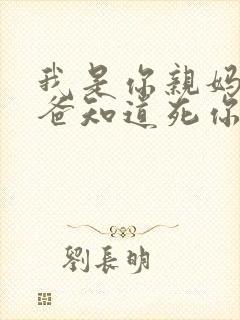 我是你親媽
爸知道死你
劉長明